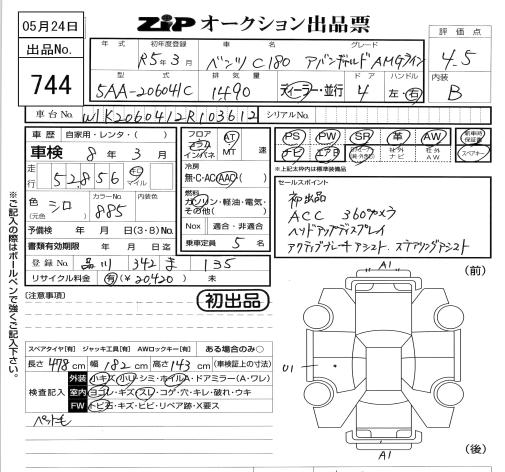 05月24日
ZiP オークション出品票
出品No.
744
年式 初年度登録 車名 グレード
R5年3月 ベンツ C180 アバンギャルド AMGライン
型式 排気量 ドア ハンドル
5AA-206041C 1490 ディーラー・並行 4 左・右
評価点
4.5
内装
B
車台No. W1K2060412R103612 シリアルNo.
車歴 自家用・レンタ( )
車検 8年3月
走行 52,856 キロ マイル
色 シロ カラーNo. 885 内装色
(元色)
予備検 年 月 日(3・8)No.
書類有効期限 年 月 日迄
登録No. 品川 342 ま 135
リサイクル料金 有(¥20,420) 未
フロア コラム インパネ AT MT 速
冷房
無・C・AC・AAC
燃料
ガソリン・軽油・電気・その他( )
Nox 適合・非適合
乗車定員 5名
PS PW SR 革 AW 新車時保証書
ナビ エアB 社外ナビ 社外AW スペアキー
※上記太枠内は標準装備品
セールスポイント
初出品
ACC 360°カメラ
ヘッドアップディスプレイ
アクティブブレーキアシスト、ステアリングアシスト
[注意事項]
初出品
スペアタイヤ[有] ジャッキ工具[有] AWロックキー[有] ある場合のみ○
長さ 478cm 幅 182cm 高さ 143cm (車検証上の寸法)
検査記入
外装 小キズ・小U・シミ・ホイルA・ドアミラー(A・ワレ)
室内 ヨゴレ・キズ・スレ・コゲ・穴・キレ・破れ・ウキ
FW トビ石・キズ・ヒビ・リペア跡・X要ス
ペット毛
※ご記入の際はボールペンで強くご記入下さい。
A1
(前)
U1
A1
(後)